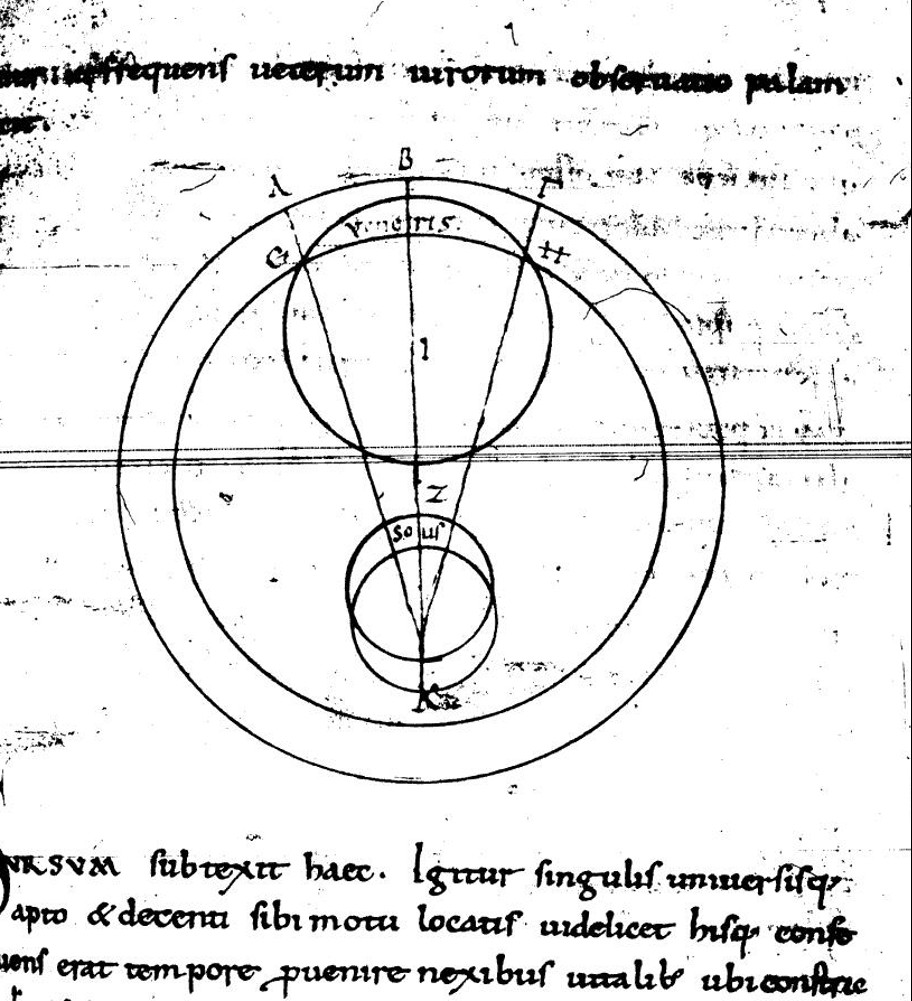 assequens ueterum uirorum obseruatio palam
B
Λ Γ
Veneris.
G H
I
Z
Solis
K
URSUM subtexit haec. Igitur singulis uniuersisq;
apto & decenti sibi motu locatis uidelicet hisq; conse
quens erat tempore puenire nexibus uitalib; ubi constric